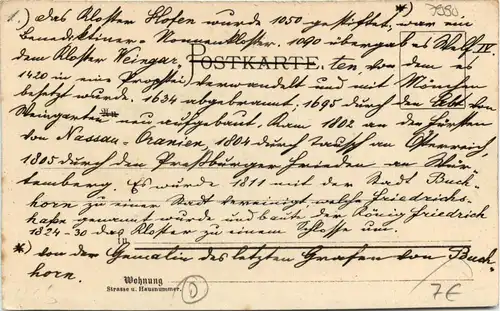 1.) Das Kloster Hofen wurde 1050 gestiftet, *) war ein
Benediktiner-Nonnenkloster. 1090 übergab es Welf IV.
dem Kloster Weingar- POSTKARTE ten, von dem es
1420 in eine Propstei verwandelt und mit Mönchen
besetzt wurde. 1634 abgebrannt, 1695 durch den Abt von
Weingarten neu aufgebaut. Kam 1802 an die Fürsten
von Nassau-Oranien, 1804 durch Tausch an Österreich,
1805 durch den Preßburger Frieden an Wür-
temberg. Es wurde 1811 mit der Stadt Buch-
horn zu einer Stadt vereinigt, welche Friedrichs-
hafen genannt wurde und baute der König Friedrich
1824-30 das Kloster zu einem Schlosse um.
in
*) von der Gemalin des letzten Grafen von Buch-
horn.
Wohnung
Strasse u. Hausnummer.
7€